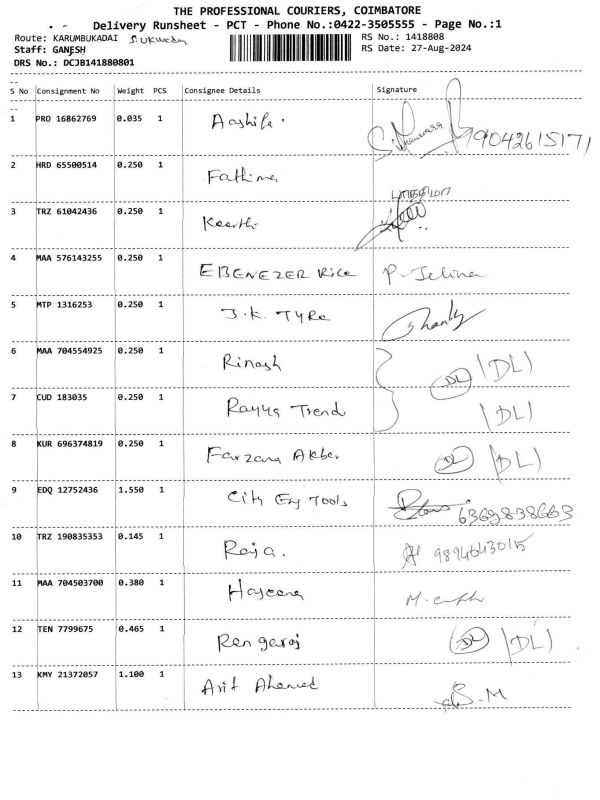 THE PROFESSIONAL COURIERS, COIMBATORE
Delivery Runsheet - PCT - Phone No.:0422-3505555 - Page No.:1
Route: KARUMBUKADAI
RS No.: 1418808
Staff: GANESH
RS Date: 27-Aug-2024
DRS No.: DCJB141880801
S No Consignment No Weight PCS Consignee Details Signature
1 PRO 16862769 0.035 1 Aashifa. 99042615171
2 HRD 65500514 0.250 1 Fathima
3 TRZ 61042436 0.250 1 Keerthi
4 MAA 576143255 0.250 1 EBENEZER Rice P. Jelina
5 MTP 1316253 0.250 1 J.K. TYRe
6 MAA 704554925 0.250 1 Rinash DL (DL)
7 CUD 183035 0.250 1 Rayya Trend (DL)
8 KUR 696374819 0.250 1 Farzana Akber DL (DL)
9 EDQ 12752436 1.550 1 City Eng Tools 6369838663
10 TRZ 190835353 0.145 1 Raja. 9894643015
11 MAA 704503700 0.380 1 Haseena
12 TEN 7799675 0.465 1 Rengaraj DL (DL)
13 KMY 21372057 1.100 1 Asit Ahamed